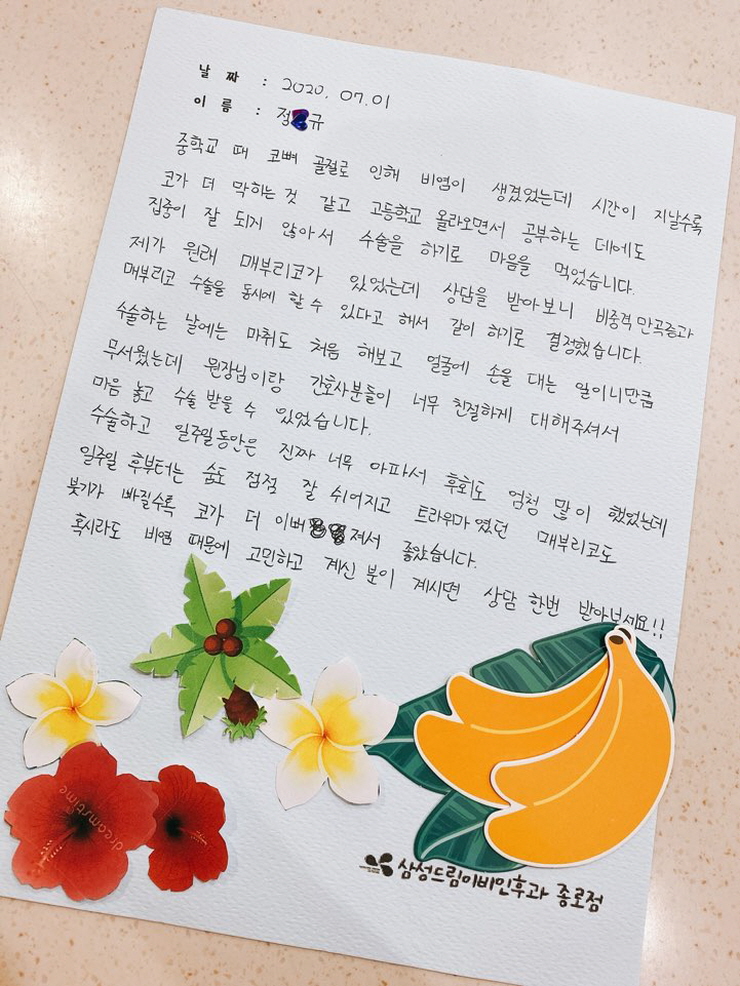 날 짜 : 2020. 07. 01
이 름 : 정 규
중학교 때 코뼈 골절로 인해 비염이 생겼었는데 시간이 지날수록
코가 더 막히는 것 같고 고등학교 올라오면서 공부하는 데에도
집중이 잘 되지 않아서 수술을 하기로 마음을 먹었습니다.
제가 원래 매부리코가 있었는데 상담을 받아보니 비중격만곡증과
매부리코 수술을 동시에 할 수 있다고 해서 같이 하기로 결정했습니다.
수술하는 날에는 마취도 처음 해보고 얼굴에 손을 대는 일이니만큼
무서웠는데 원장님이랑 간호사분들이 너무 친절하게 대해주셔서
마음 놓고 수술 받을 수 있었습니다.
수술하고 일주일동안은 진짜 너무 아파서 후회도 엄청 많이 했었는데
일주일 후부터는 숨도 점점 잘 쉬어지고 트라우마였던 매부리코도
붓기가 빠질수록 코가 더 이뻐 져서 좋았습니다.
혹시라도 비염 때문에 고민하고 계신 분이 계시면 상담 한번 받아보세요!!
dreamstime
삼성드림이비인후과 종로점